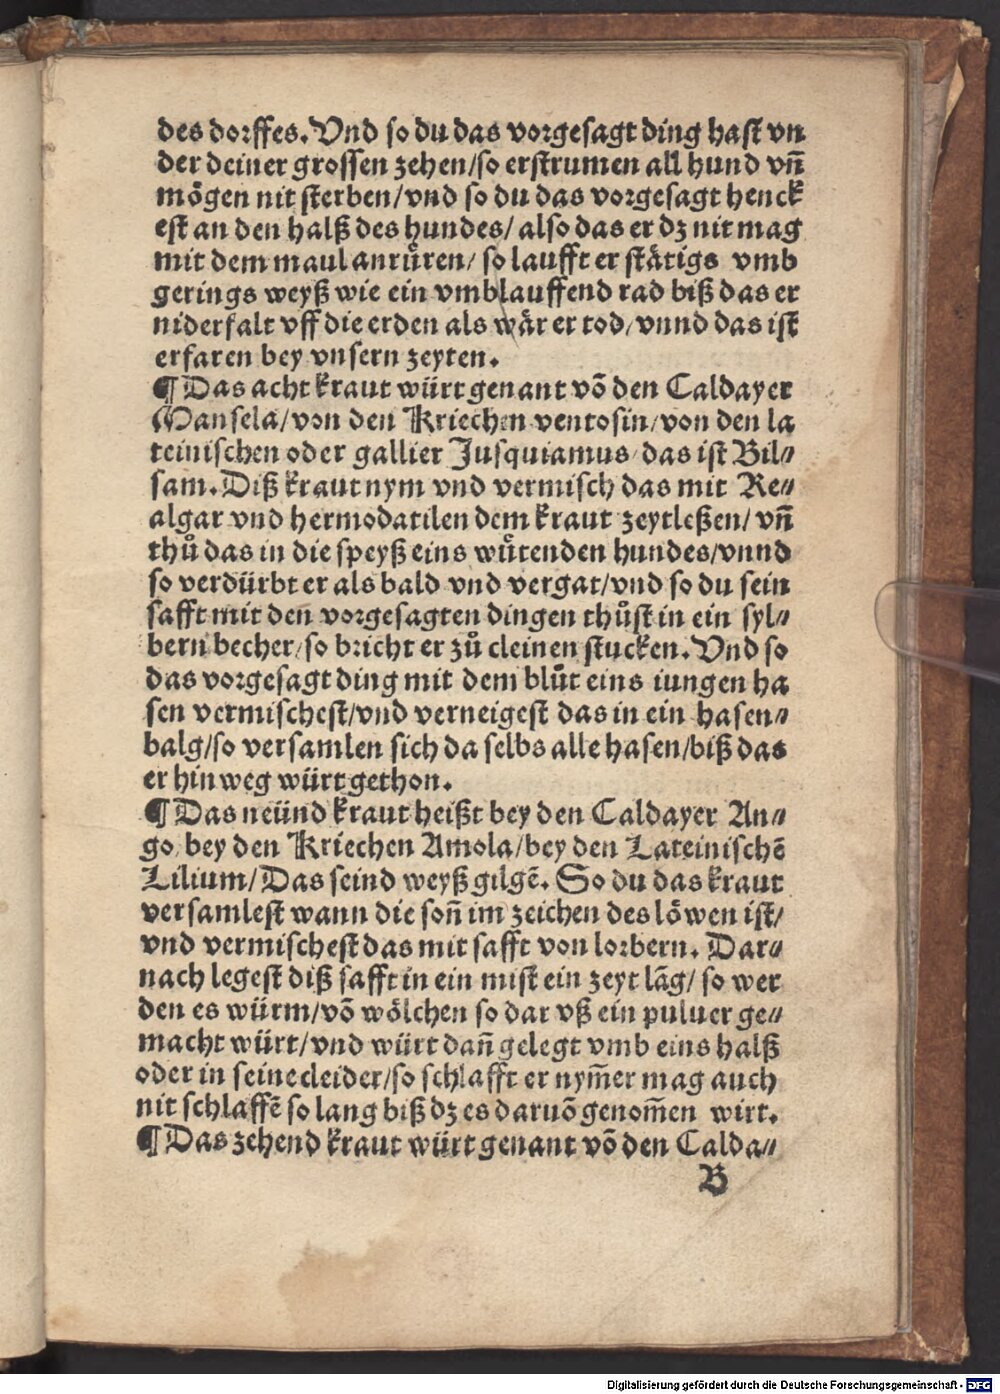 des dorffes. Vnd so du das vorgesagt ding hast vn
der deiner grossen zehen/so erstrumen all hund vñ
mögen nit sterben/vnd so du das vorgesagt henck
est an den halß des hundes/ also das er dz nit mag
mit dem maul anrůren/ so laufft er stätigs vmb
gerings weyß wie ein vmblauffend rad biß das er
niderfalt vff die erden als wär er tod/vnnd das ist
erfaren bey vnsern zeyten.
¶ Das acht kraut würt genant võ den Caldayer
Mansela/von den Kriechen ventosin/von den la
teinischen oder gallier Jusquiamus/das ist Bil⸗
sam. Diß kraut nym vnd vermisch das mit Re⸗
algar vnd hermodatilen dem kraut zeytleßen/ vñ
thů das in die speyß eins wůtenden hundes/vnnd
so verdürbt er als bald vnd vergat/vnd so du sein
safft mit den vorgesagten dingen thůst in ein syl⸗
bern becher/so bricht er zů cleinen stucken. Vnd so
das vorgesagt ding mit dem blůt eins iungen ha
sen vermischest/vnd verneigest das in ein hasen⸗
balg/so versamlen sich da selbs alle hasen/biß das
er hin weg würt gethon.
¶ Das neünd kraut heißt bey den Caldayer An⸗
go/bey den Kriechen Amola/bey den Lateinischẽ
Lilium/Das seind weyß gilgẽ. So du das kraut
versamlest wann die soñ im zeichen des löwen ist/
vnd vermischest das mit safft von lorbern. Dar⸗
nach legest diß safft in ein mist ein zeyt lãg/ so wer
den es würm/võ wölchen so dar vß ein puluer ge⸗
macht würt/vnd würt dañ gelegt vmb eins halß
oder in seine cleider/so schlafft er nym̃er mag auch
nit schlaffẽ so lang biß dz es daruõ genom̃en wirt.
¶ Das zehend kraut würt genant võ den Calda⸗
B
Digitalisierung gefördert durch die Deutsche Forschungsgemeinschaft - DFG